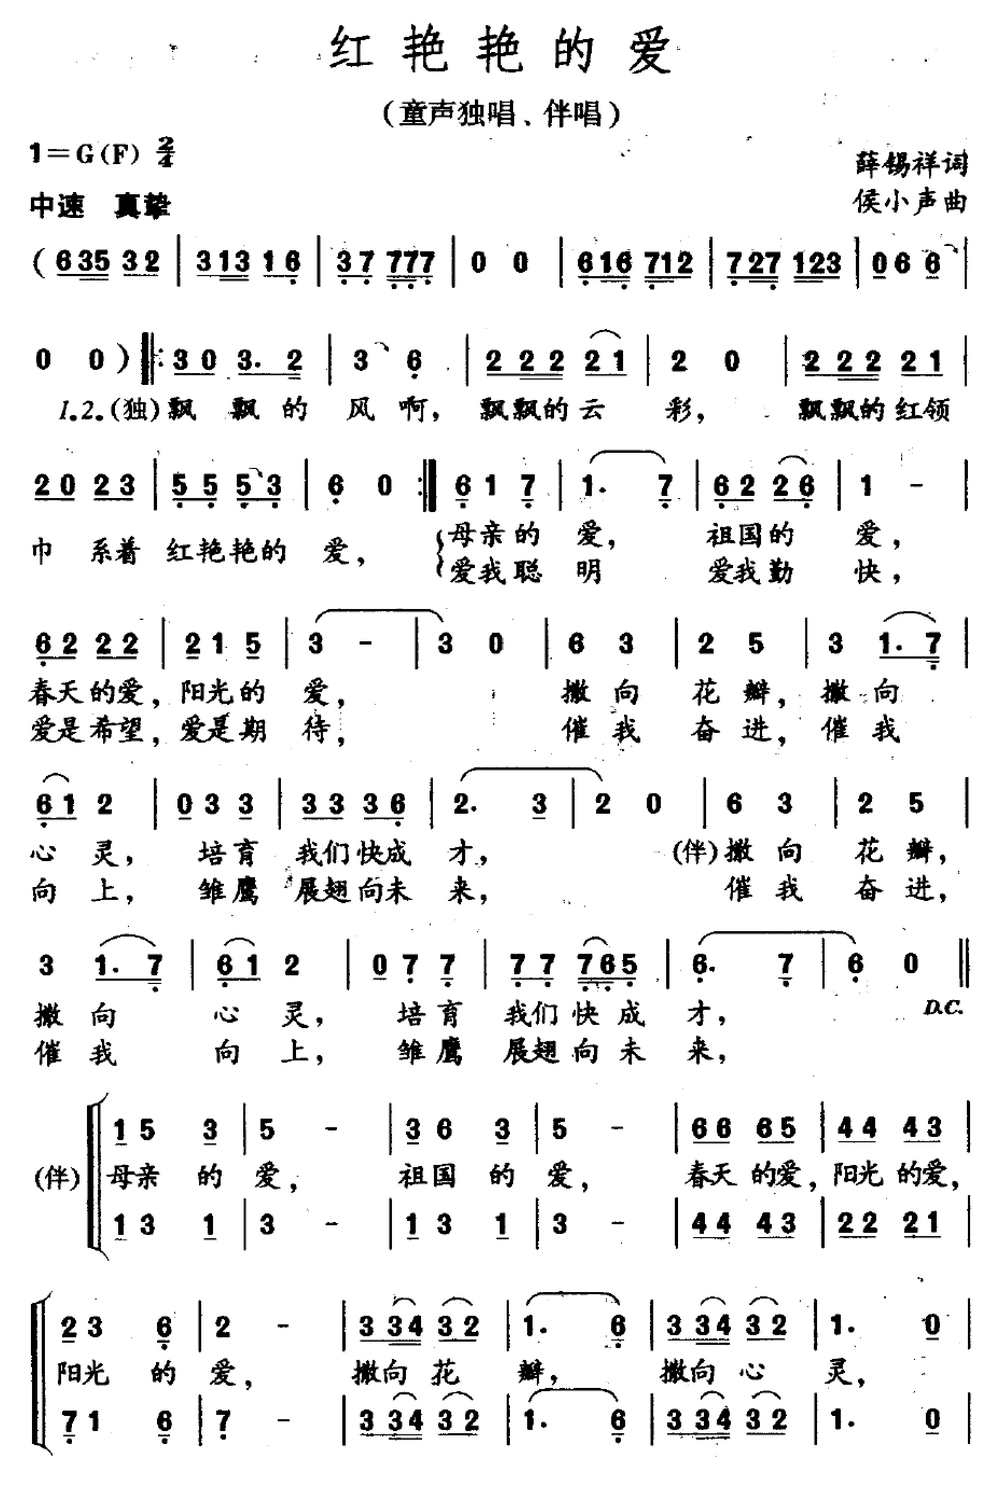 红艳艳的爱
（童声独唱、伴唱）
1=G(F) 2/4
薛锡祥词
中速 真挚
侯小声曲
( 635 32 | 313 16 | 37 777 | 0 0 | 616 712 | 727 123 | 0 6 6 |
0 0 ) ‖: 30 3. 2 | 3 6 | 2 22 21 | 2 0 | 2 22 21 |
1.2.(独)飘 飘的 风啊，飘飘的云 彩， 飘飘的红领
20 23 | 55 53 | 6 0 :‖ 6 1 7 | 1. 7 | 62 26 | 1 - |
巾 系着 红艳艳的 爱， 母亲的 爱， 祖国的 爱，
爱我聪 明 爱我勤 快，
62 22 | 2 1 5 | 3 - | 3 0 | 6 3 | 2 5 | 3 1. 7 |
春天的爱，阳光的 爱， 撒向 花瓣，撒向
爱是希望，爱是期 待， 催我 奋进，催我
61 2 | 0 3 3 | 33 36 | 2. 3 | 2 0 | 6 3 | 2 5 |
心灵， 培育 我们快成 才， (伴)撒向 花瓣，
向上， 雏鹰 展翅向未 来， 催我 奋进，
3 1. 7 | 61 2 | 0 7 7 | 77 765 | 6. 7 | 6 0 ‖
撒向 心灵， 培育 我们快成 才， D.C.
催我 向上， 雏鹰 展翅向未 来，
1 5 3 | 5 - | 3 6 3 | 5 - | 66 65 | 44 43 |
(伴) 母亲 的 爱， 祖国 的 爱， 春天 的爱，阳光 的爱，
1 3 1 | 3 - | 1 3 1 | 3 - | 44 43 | 22 21 |
2 3 6 | 2 - | 3 34 32 | 1. 6 | 3 34 32 | 1. 0 |
阳光 的 爱， 撒向 花 瓣， 撒向 心 灵，
7 1 6 | 7 - | 3 34 32 | 1. 6 | 3 34 32 | 1. 0 |